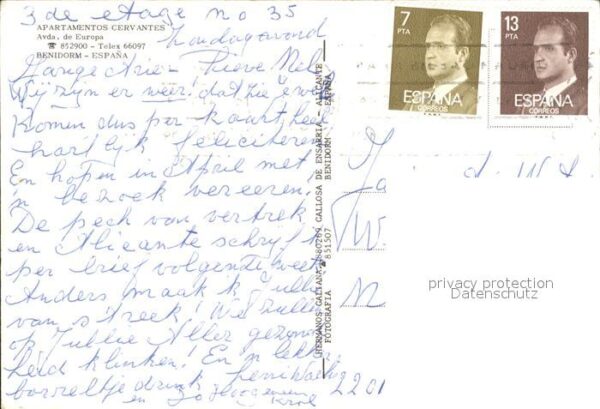 3de etage no 35
APARTAMENTOS CERVANTES
Avda. de Europa
☎ 852900 - Telex 66097
BENIDORM - ESPAÑA
Zondagavond
Lieve Nel
Wij zijn er weer! dat zie
Komen dus per kaart heel
hartelijk feliciteren
En hopen in April met
'n bezoek vereeren.
De pech van vertrek
en Alicante schrijf ik
per brief volgende week
Anders maak ik jullie
van streek! Wij zullen
op Jullie Aller gezond
heid klinken! En 'n lekker
borreltje drink
en Jo Hoogensen
Krol
HERMANOS GALIANA 880269 CALLOSA DE ENSARRIA - ALICANTE
FOTOGRAFIA ☎ 851507 BENIDORM
7
PTA
ESPAÑA
CORREOS
13
PTA
ESPAÑA
CORREOS
Ja
W.
N
2201
privacy protection
Datenschutz